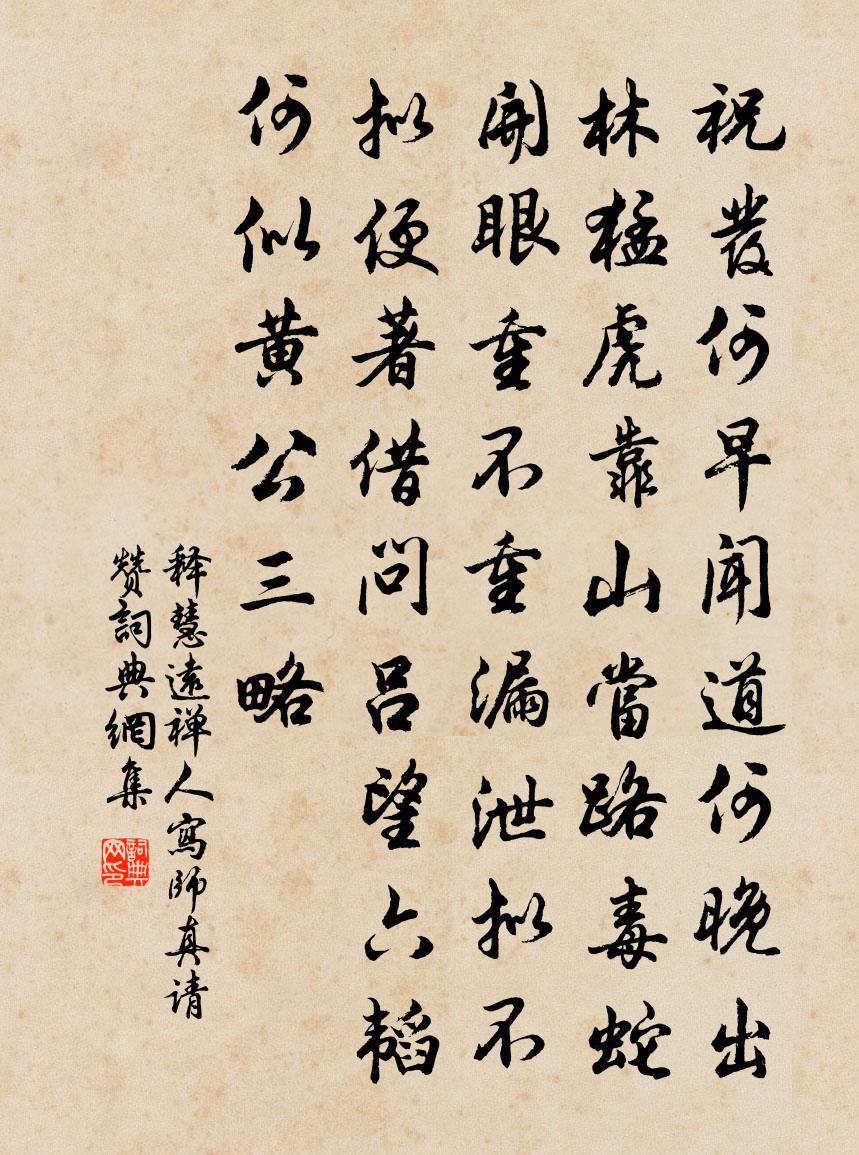 祝發何早聞道何晚出
林猛虎靠山當路毒蛇
開眼重不重漏泄拟不
拟便著借问吕望六韬
何似黄公三略
释慧遠禅人寫師真请
赞詞典網集
詞典
网印